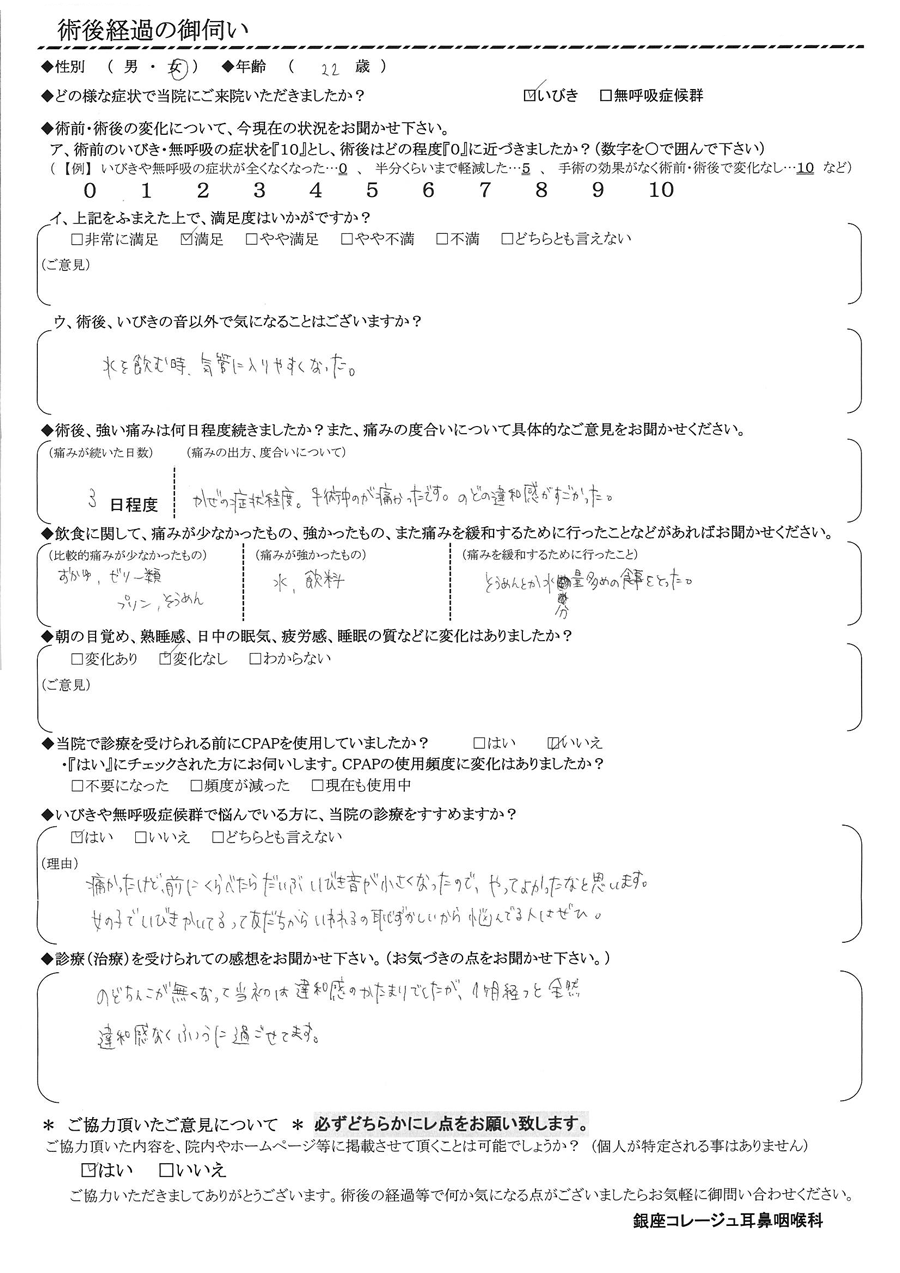 術後経過の御伺い
◆性別 ( 男 ・ 女 ) ◆年齢 ( 22 歳 )
◆どの様な症状で当院にご来院いただきましたか? ☑いびき □無呼吸症候群
◆術前・術後の変化について、今現在の状況をお聞かせ下さい。
ア、術前のいびき・無呼吸の症状を『10』とし、術後はどの程度『0』に近づきましたか?(数字を〇で囲んで下さい)
(【例】 いびきや無呼吸の症状が全くなくなった…0 、 半分くらいまで軽減した…5 、 手術の効果がなく術前・術後で変化なし…10 など)
0 1 2 3 4 5 6 7 8 9 10
イ、上記をふまえた上で、満足度はいかがですか?
□非常に満足 ☑満足 □やや満足 □やや不満 □不満 □どちらとも言えない
(ご意見)
ウ、術後、いびきの音以外で気になることはございますか?
水を飲む時、気管に入りやすくなった。
◆術後、強い痛みは何日程度続きましたか?また、痛みの度合いについて具体的なご意見をお聞かせください。
(痛みが続いた日数) (痛みの出方、度合いについて)
3 日程度 かぜの症状程度。手術中のが痛かったです。のどの違和感がすごかった。
◆飲食に関して、痛みが少なかったもの、強かったもの、また痛みを緩和するために行ったことなどがあればお聞かせください。
(比較的痛みが少なかったもの) (痛みが強かったもの) (痛みを緩和するために行ったこと)
おかゆ、ゼリー類 水、飲料 そうめんとか水分量多めの食事をとった。
プリン、そうめん
◆朝の目覚め、熟睡感、日中の眠気、疲労感、睡眠の質などに変化はありましたか?
□変化あり ☑変化なし □わからない
(ご意見)
◆当院で診療を受けられる前にCPAPを使用していましたか? □はい ☑いいえ
・『はい』にチェックされた方にお伺いします。CPAPの使用頻度に変化はありましたか?
□不要になった □頻度が減った □現在も使用中
◆いびきや無呼吸症候群で悩んでいる方に、当院の診療をすすめますか?
☑はい □いいえ □どちらとも言えない
(理由)
痛かったけど、前にくらべたらだいぶいびき音が小さくなったので、やってよかったなと思います。
女の子でいびきかいてるって友だちからいわれるの恥ずかしいから悩んでる人はぜひ。
◆診療(治療)を受けられての感想をお聞かせ下さい。(お気づきの点をお聞かせ下さい。)
のどちんこが無くなって当初は違和感のかたまりでしたが、1ヶ月経つと全然
違和感なくふつうに過ごせてます。
＊ ご協力頂いたご意見について ＊ 必ずどちらかにレ点をお願い致します。
ご協力頂いた内容を、院内やホームページ等に掲載させて頂くことは可能でしょうか? (個人が特定される事はありません)
☑はい □いいえ
ご協力いただきましてありがとうございます。術後の経過等で何か気になる点がございましたらお気軽に御問い合わせください。
銀座コレージュ耳鼻咽喉科